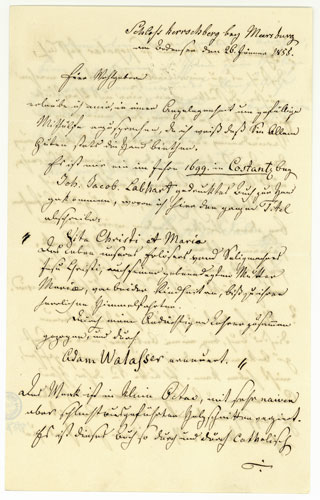 Schloss Herrschberg bey Meersburg
am Bodensee den 26. Jänner 1858.
Euer Wohlgeboren
erlaube ich mir, in einer Angelegenheit um gefällige
Mithülfe anzusprechen, da ich weiß daß Sie Allem
Guten stets die Hand biethen.
Es ist mir ein im Jahre 1699. in Costantz bey
Joh. Jacob. Labhart gedrucktes Buch zur Hand
gekommen, wovon ich hier den ganzen Titel
abschreibe.
„ Vita Christi et Mariä
Das Leben unseres Erlösers und Seligmachers
Jesu Christi, auch seiner gebenedeytesten Mutter
Mariä, von beider Kindheiten, biß zu ihrer
herrlichen Himmelfahrten.
Durch einen Andächtigen Lehrer zusammen
gezogen, und durch
Adam Walasser erneuert. "
Das Werk ist in klein Octav, mit sehr naiven
aber schlecht ausgeführten Holzschnitten geziert.
Es ist dieses Buch so durch und durch Catholisch